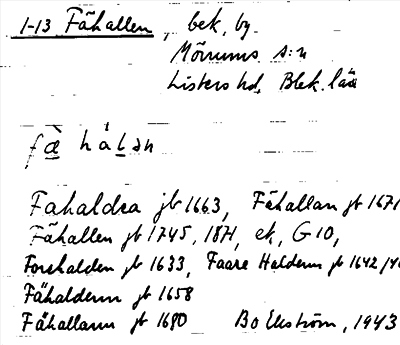 1-13 Fähallen, bek, by.
Mörrums s:n
Listers hd, Blek. län
fæ̀ hálən
Fahaldea jb 1663, Fähallan jb 1671
Fähallen jb 1745, 1871, ek, G 10,
Forehalden jb 1633, Faare Haldenn jb 1642/
Fähaldenn jb 1658
Fähallann jb 1680 Bo Ekström, 1943